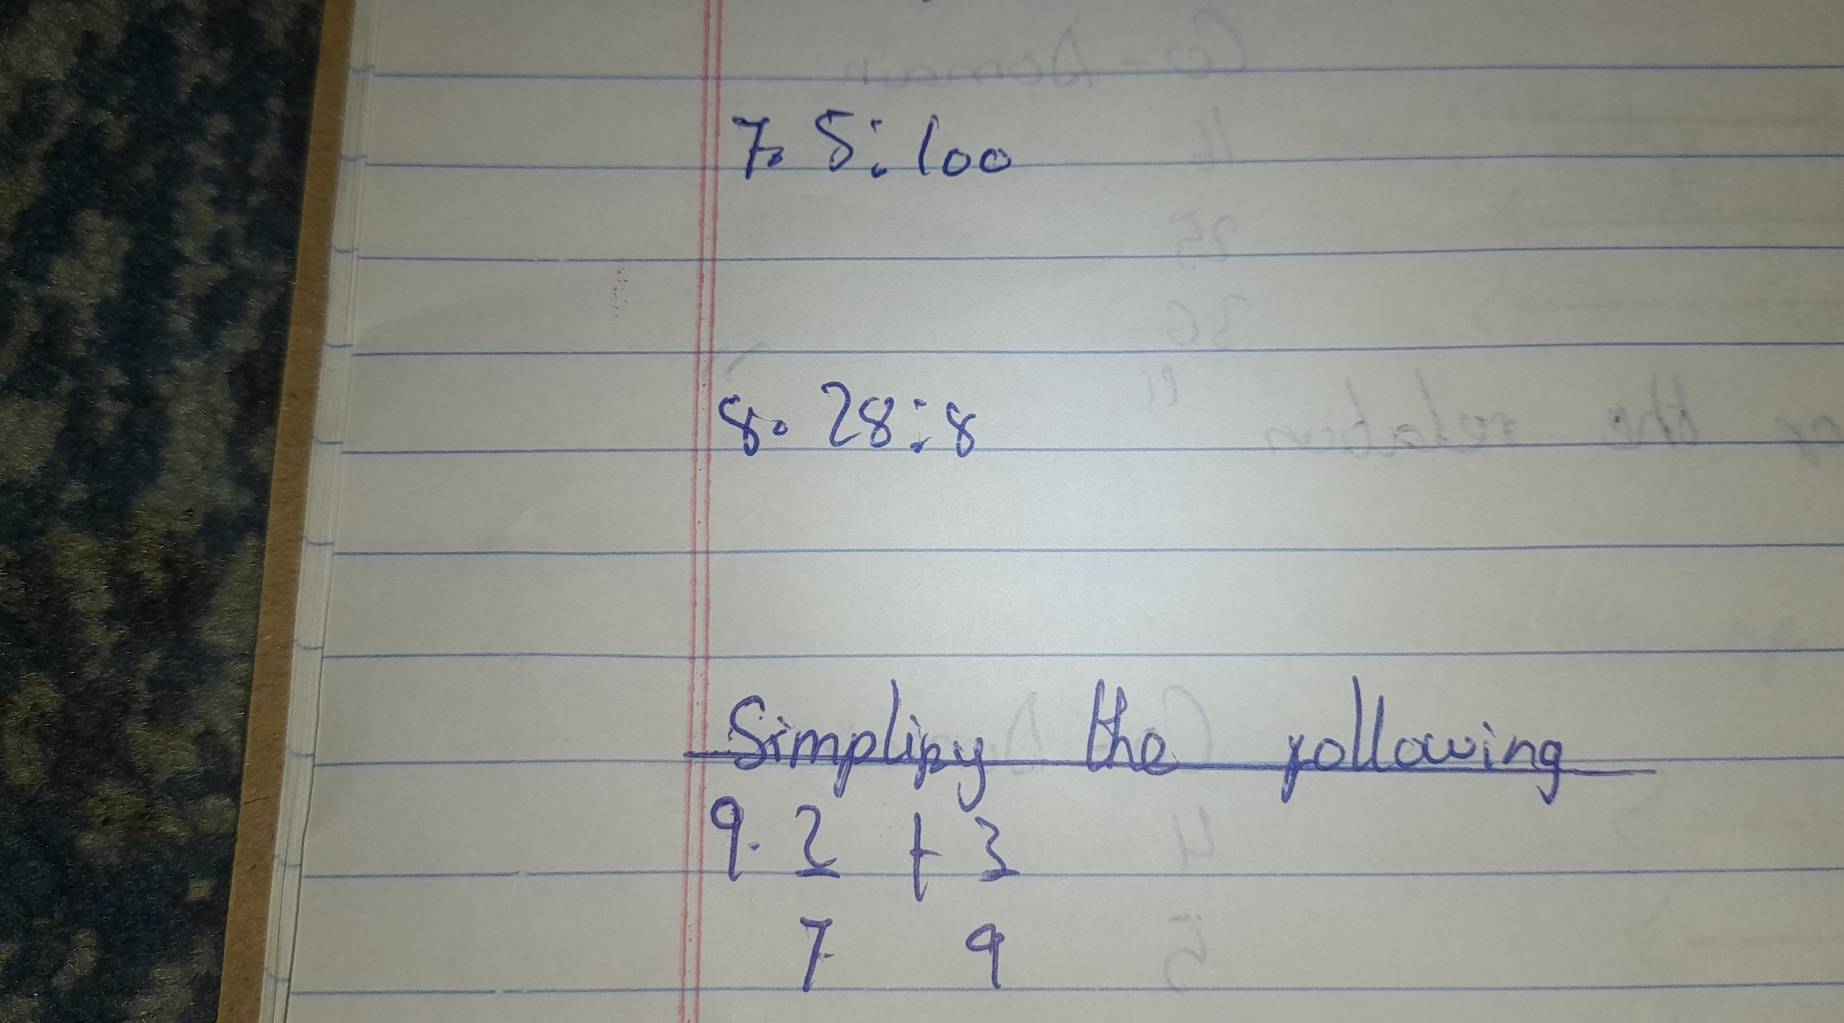 7. 5:100
8. 28:8
Simplify the following
9. 2 + 3
7 9